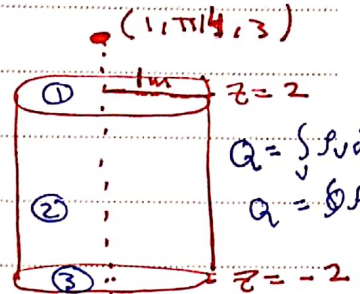 (1, π/4, 3)
① 1m z = 2
Q = ∫ᵥ ρᵥ
② Q = ∮
③ z = -2